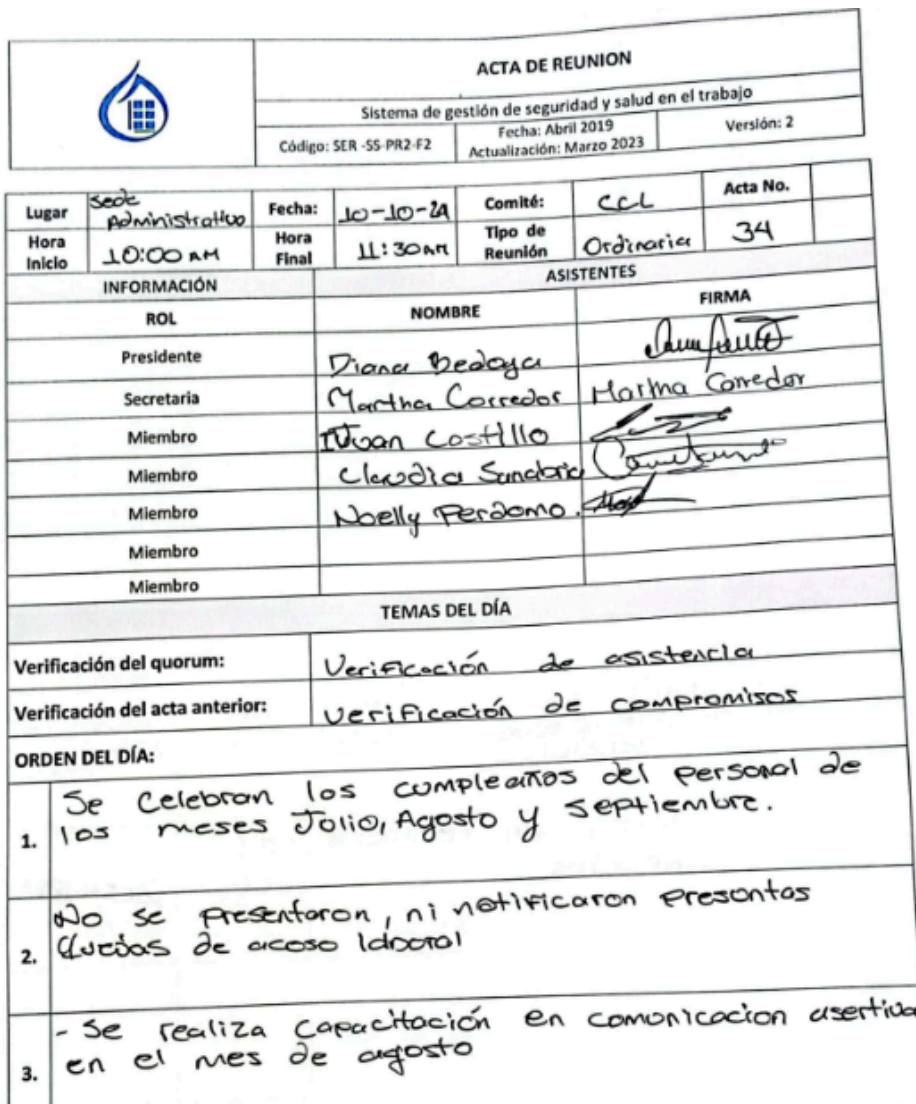 ACTA DE REUNION
Sistema de gestión de seguridad y salud en el trabajo
Código: SER -SS-PR2-F2
Fecha: Abril 2019
Actualización: Marzo 2023
Versión: 2
Lugar
Sede
Administrativo
Fecha:
10-10-24
Comité:
CCL
Acta No.
Hora
Inicio
10:00 AM
Hora
Final
11:30 AM
Tipo de
Reunión
Ordinaria
34
INFORMACIÓN
ASISTENTES
ROL
NOMBRE
FIRMA
Presidente
Diana Bedoya
Secretaria
Martha Corredor
Martha Corredor
Miembro
Castillo
Miembro
Claudia Sanabria
Miembro
Noelly Perdomo.
Miembro
Miembro
TEMAS DEL DÍA
Verificación del quorum:
Verificación de asistencia
Verificación del acta anterior:
Verificación de compromisos
ORDEN DEL DÍA:
Se Celebran los cumpleaños del personal de
1. los meses Jolio, Agosto y Septiembre.
No se presentaron, ni notificaron presontas
2. Quejas de acoso laboral
- Se realiza Capacitación en comonicacion asertiva
3. en el mes de agosto